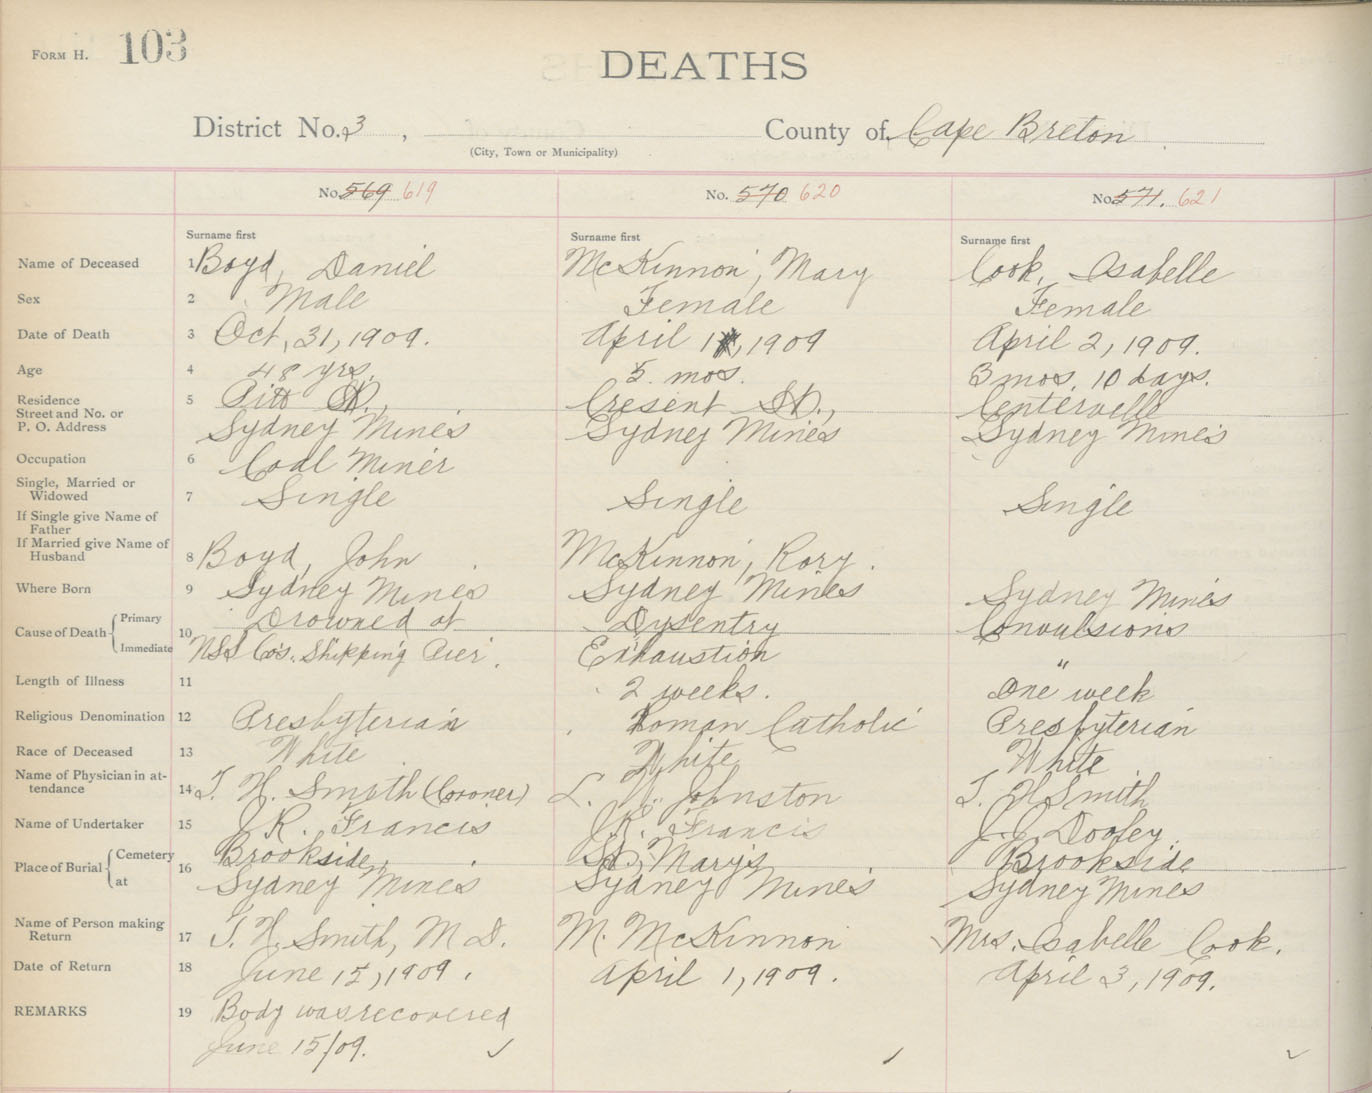 FORM H. 103
DEATHS
District No. 3, County of Cape Breton
(City, Town or Municipality)
No. 569 619 No. 570 620 No. 571. 621
Surname first Surname first Surname first
Name of Deceased 1 Boyd, Daniel McKinnon, Mary Cook, Isabelle
Sex 2 Male Female Female
Date of Death 3 Oct, 31, 1909. April 1, 1909 April 2, 1909.
Age 4 48 yrs. 5 mos. 3 mos. 10 days.
Residence 5 Pitt St., Cresent St., Centerville
Street and No. or
P. O. Address Sydney Mines Sydney Mines Sydney Mines
Occupation 6 Coal Miner
Single, Married or
Widowed 7 Single Single Single
If Single give Name of
Father
If Married give Name of
Husband 8 Boyd, John McKinnon, Rory.
Where Born 9 Sydney Mines Sydney Mines Sydney Mines
Cause of Death Primary 10 Drowned at Dysentry Convulsions
Immediate NSS Co's. Shipping Pier. Exhaustion "
Length of Illness 11 2 weeks. One week
Religious Denomination 12 Presbyterian Roman Catholic Presbyterian
Race of Deceased 13 White White White
Name of Physician in at-
tendance 14 T. H. Smith (Coroner) L. W. Johnston T. H Smith
Name of Undertaker 15 J. R. Francis J R. Francis J. J. Dooley
Place of Burial Cemetery 16 Brookside, St, Mary's Brookside
at Sydney Mines Sydney Mines Sydney Mines
Name of Person making
Return 17 T. H. Smith, M D. M. McKinnon Mrs. Isabelle Cook.
Date of Return 18 June 15, 1909. April 1, 1909. April 3, 1909.
REMARKS 19 Body was recovered
June 15/09.